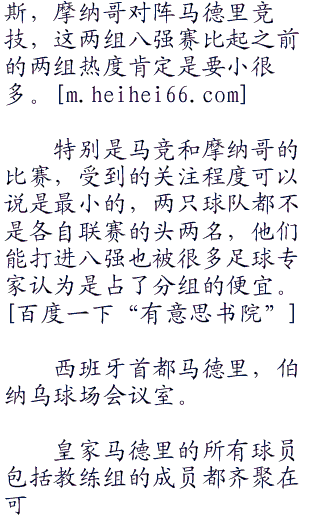 斯，摩纳哥对阵马德里竞
技，这两组八强赛比起之前
的两组热度肯定是要小很
多。[m.heihei66.com]
特别是马竞和摩纳哥的
比赛，受到的关注程度可以
说是最小的，两只球队都不
是各自联赛的头两名，他们
能打进八强也被很多足球专
家认为是占了分组的便宜。
[百度一下“有意思书院”]
西班牙首都马德里，伯
纳乌球场会议室。
皇家马德里的所有球员
包括教练组的成员都齐聚在
可